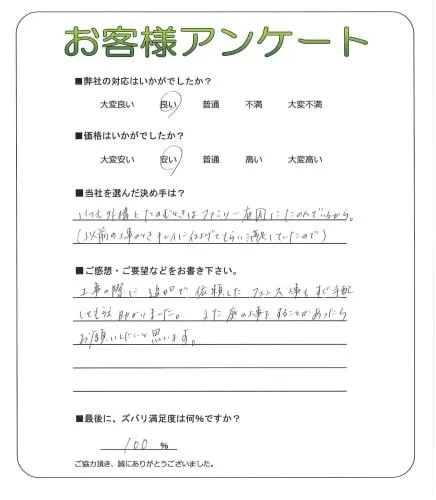 お客様アンケート
■弊社の対応はいかがでしたか？
大変良い 良い 普通 不満 大変不満
■価格はいかがでしたか？
大変安い 安い 普通 高い 大変高い
■当社を選んだ決め手は？
いつも外構をたのむときはファミリー庭園にたのんでいるから。
(以前の工事のときキレイに仕上げてもらい満足していたので)
■ご感想・ご要望などをお書き下さい。
工事の際に追加で依頼したフェンス塀もすぐ手配
してもらえ助かりました。また庭の工事をすることがあったら
お願いしたいと思います。
■最後に、ズバリ満足度は何%ですか？
100 %
ご協力頂き、誠にありがとうございました。